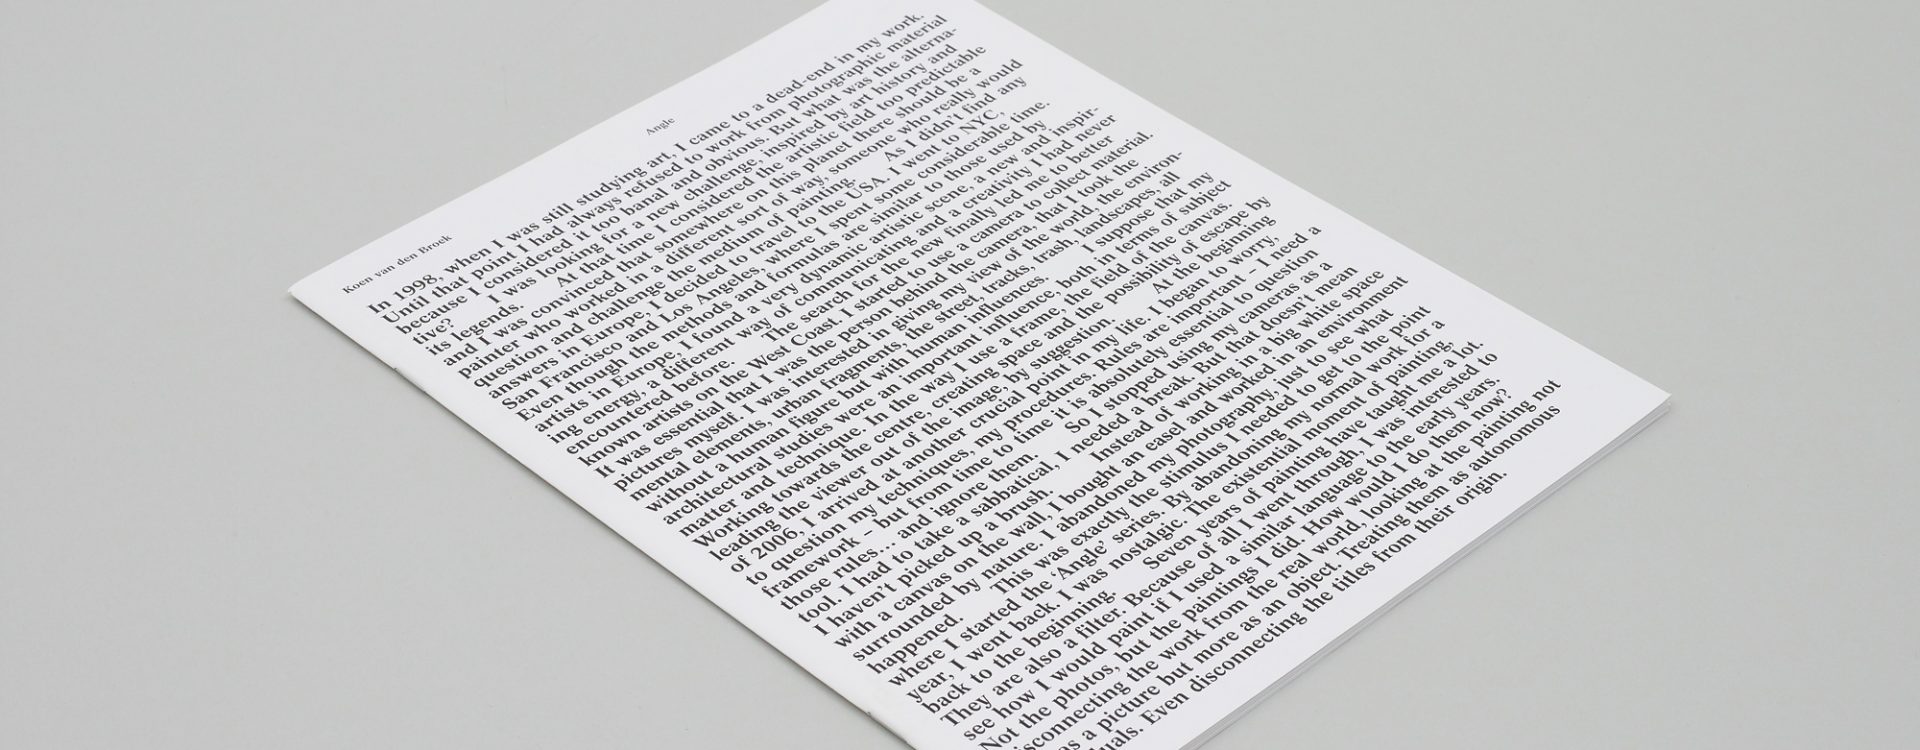 Koen van den Broek
Angle
In 1998, when I was still studying art, I came to a dead-end in my work.
Until that point I had always refused to work from photographic material
because I considered it too banal and obvious. But what was the alterna-
tive? I was looking for a new challenge, inspired by art history and
its legends. At that time I considered the artistic field too predictable
and I was convinced that somewhere on this planet there should be a
painter who worked in a different sort of way, someone who really would
question and challenge the medium of painting. As I didn't find any
answers in Europe, I decided to travel to the USA. I went to NYC,
San Francisco and Los Angeles, where I spent some considerable time.
Even though the methods and formulas are similar to those used by
artists in Europe, I found a very dynamic artistic scene, a new and inspir-
ing energy, a different way of communicating and a creativity I had never
encountered before. The search for the new finally led me to better
known artists on the West Coast. I started to use a camera to collect material.
It was essential that I was the person behind the camera, that I took the
pictures myself. I was interested in giving my view of the world, the environ-
mental elements, urban fragments, the street, tracks, trash, landscapes, all
without a human figure but with human influences. I suppose that my
architectural studies were an important influence, both in terms of subject
matter and technique. In the way I use a frame, the field of the canvas.
Working towards the centre, creating space and the possibility of escape by
leading the viewer out of the image, by suggestion. At the beginning
of 2006, I arrived at another crucial point in my life. I began to worry,
to question my techniques, my procedures. Rules are important – I need a
framework – but from time to time it is absolutely essential to question
those rules… and ignore them. So I stopped using my cameras as a
tool. I had to take a sabbatical, I needed a break. But that doesn't mean
I haven't picked up a brush. Instead of working in a big white space
with a canvas on the wall, I bought an easel and worked in an environment
surrounded by nature. I abandoned my photography, just to see what
happened. This was exactly the stimulus I needed to get to the point
where I started the ‘Angle’ series. By abandoning my normal work for a
year, I went back. I was nostalgic. The existential moment of painting,
back to the beginning. Seven years of painting have taught me a lot.
They are also a filter. Because of all I went through, I was interested to
see how I would paint if I used a similar language to the early years.
Not the photos, but the paintings I did. How would I do them now?
isconnecting the work from the real world, looking at the painting not
as a picture but more as an object. Treating them as autonomous
uals. Even disconnecting the titles from their origin.